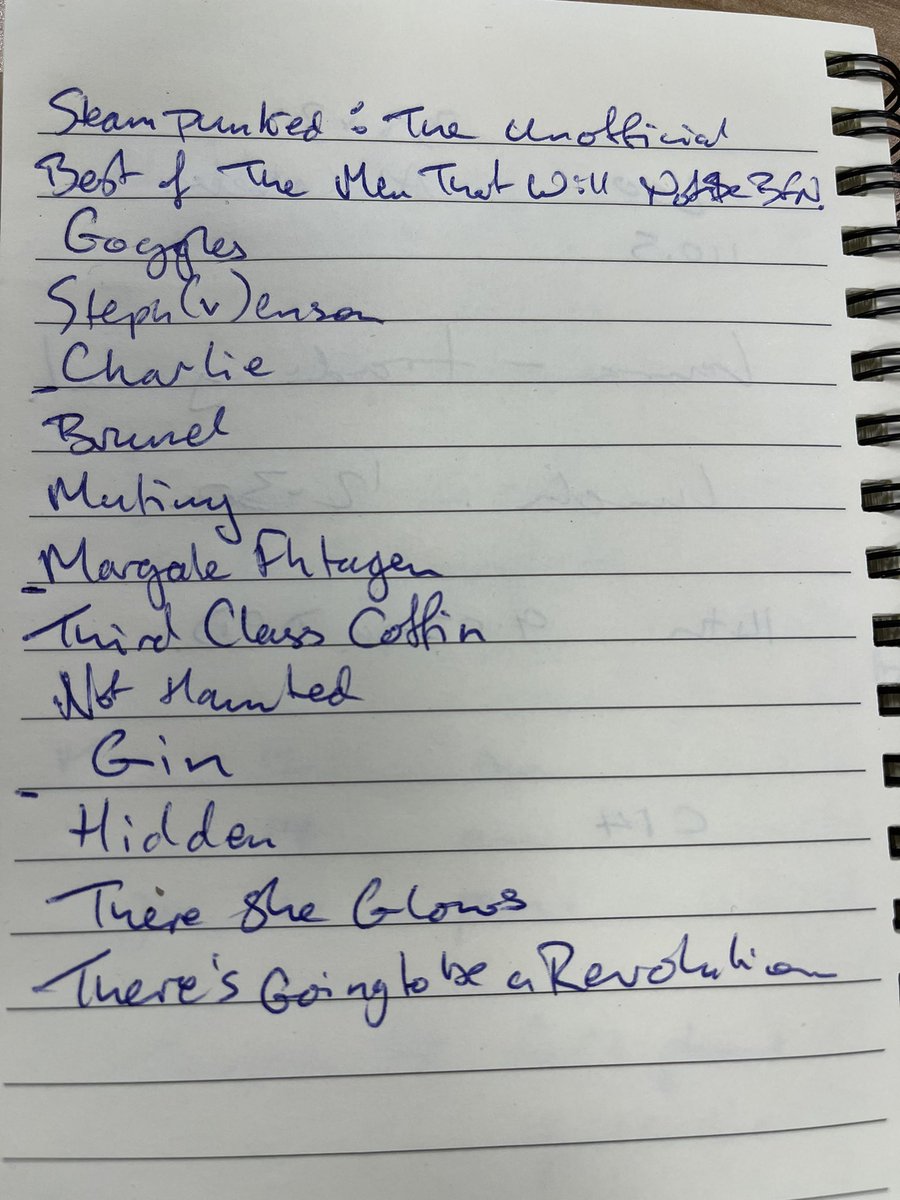 Steampunked : The Unofficial
Best of The Men That Will Not Be BfN.
Goggles
Steph(v)enson
Charlie
Brunel
Mutiny
Margate Fhtagen
Third Class Coffin
Not Haunted
Gin
Hidden
There She Glows
There's Going to be a Revolution